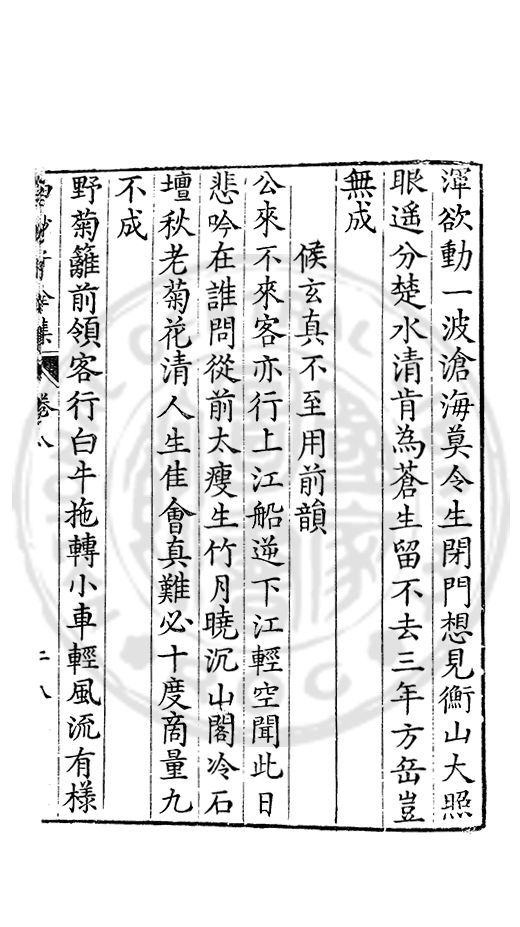 渾欲動一波滄海莫令生閉門想見衡山大照
眼遥分楚水清肯為蒼生留不去三年方岳豈
無成
候玄真不至用前韻
公來不來客亦行上江船逆下江輕空聞此日
悲吟在誰問從前太瘦生竹月曉沉山閣冷石
壇秋老菊花清人生隹會真難必十度商量九
不成
野菊籬前領客行白牛拖轉小車輕風流有樣
集
卷八
二八